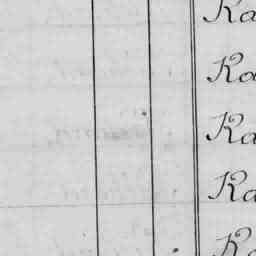 Ka
Ka
Ka
Ka
Ka